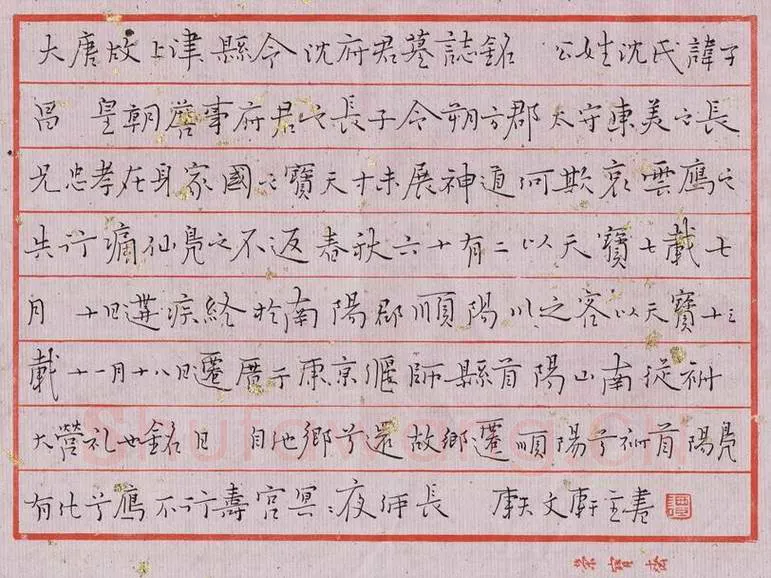 大唐故上津縣令沈府君墓誌銘 公姓沈氏諱子
昌 皇朝詹事府君之長子今朔方郡太守東美之長
兄忠孝在身家國之寶天才未展神道何欺哀雲鴈之
失行痛仙鳧之不返春秋六十有二以天寶七載七
月 十日遘疾終於南陽郡順陽川之客以天寶十三
載十一月十八日遷厝于東京偃師縣首陽山南從祔
大營礼也銘曰 自他鄉兮還故鄉遷順陽兮祔首陽鳧
有化兮鴈不行壽宮冥:夜何長 軒文軒主書
榮寶齋
ShufaZiDian.com